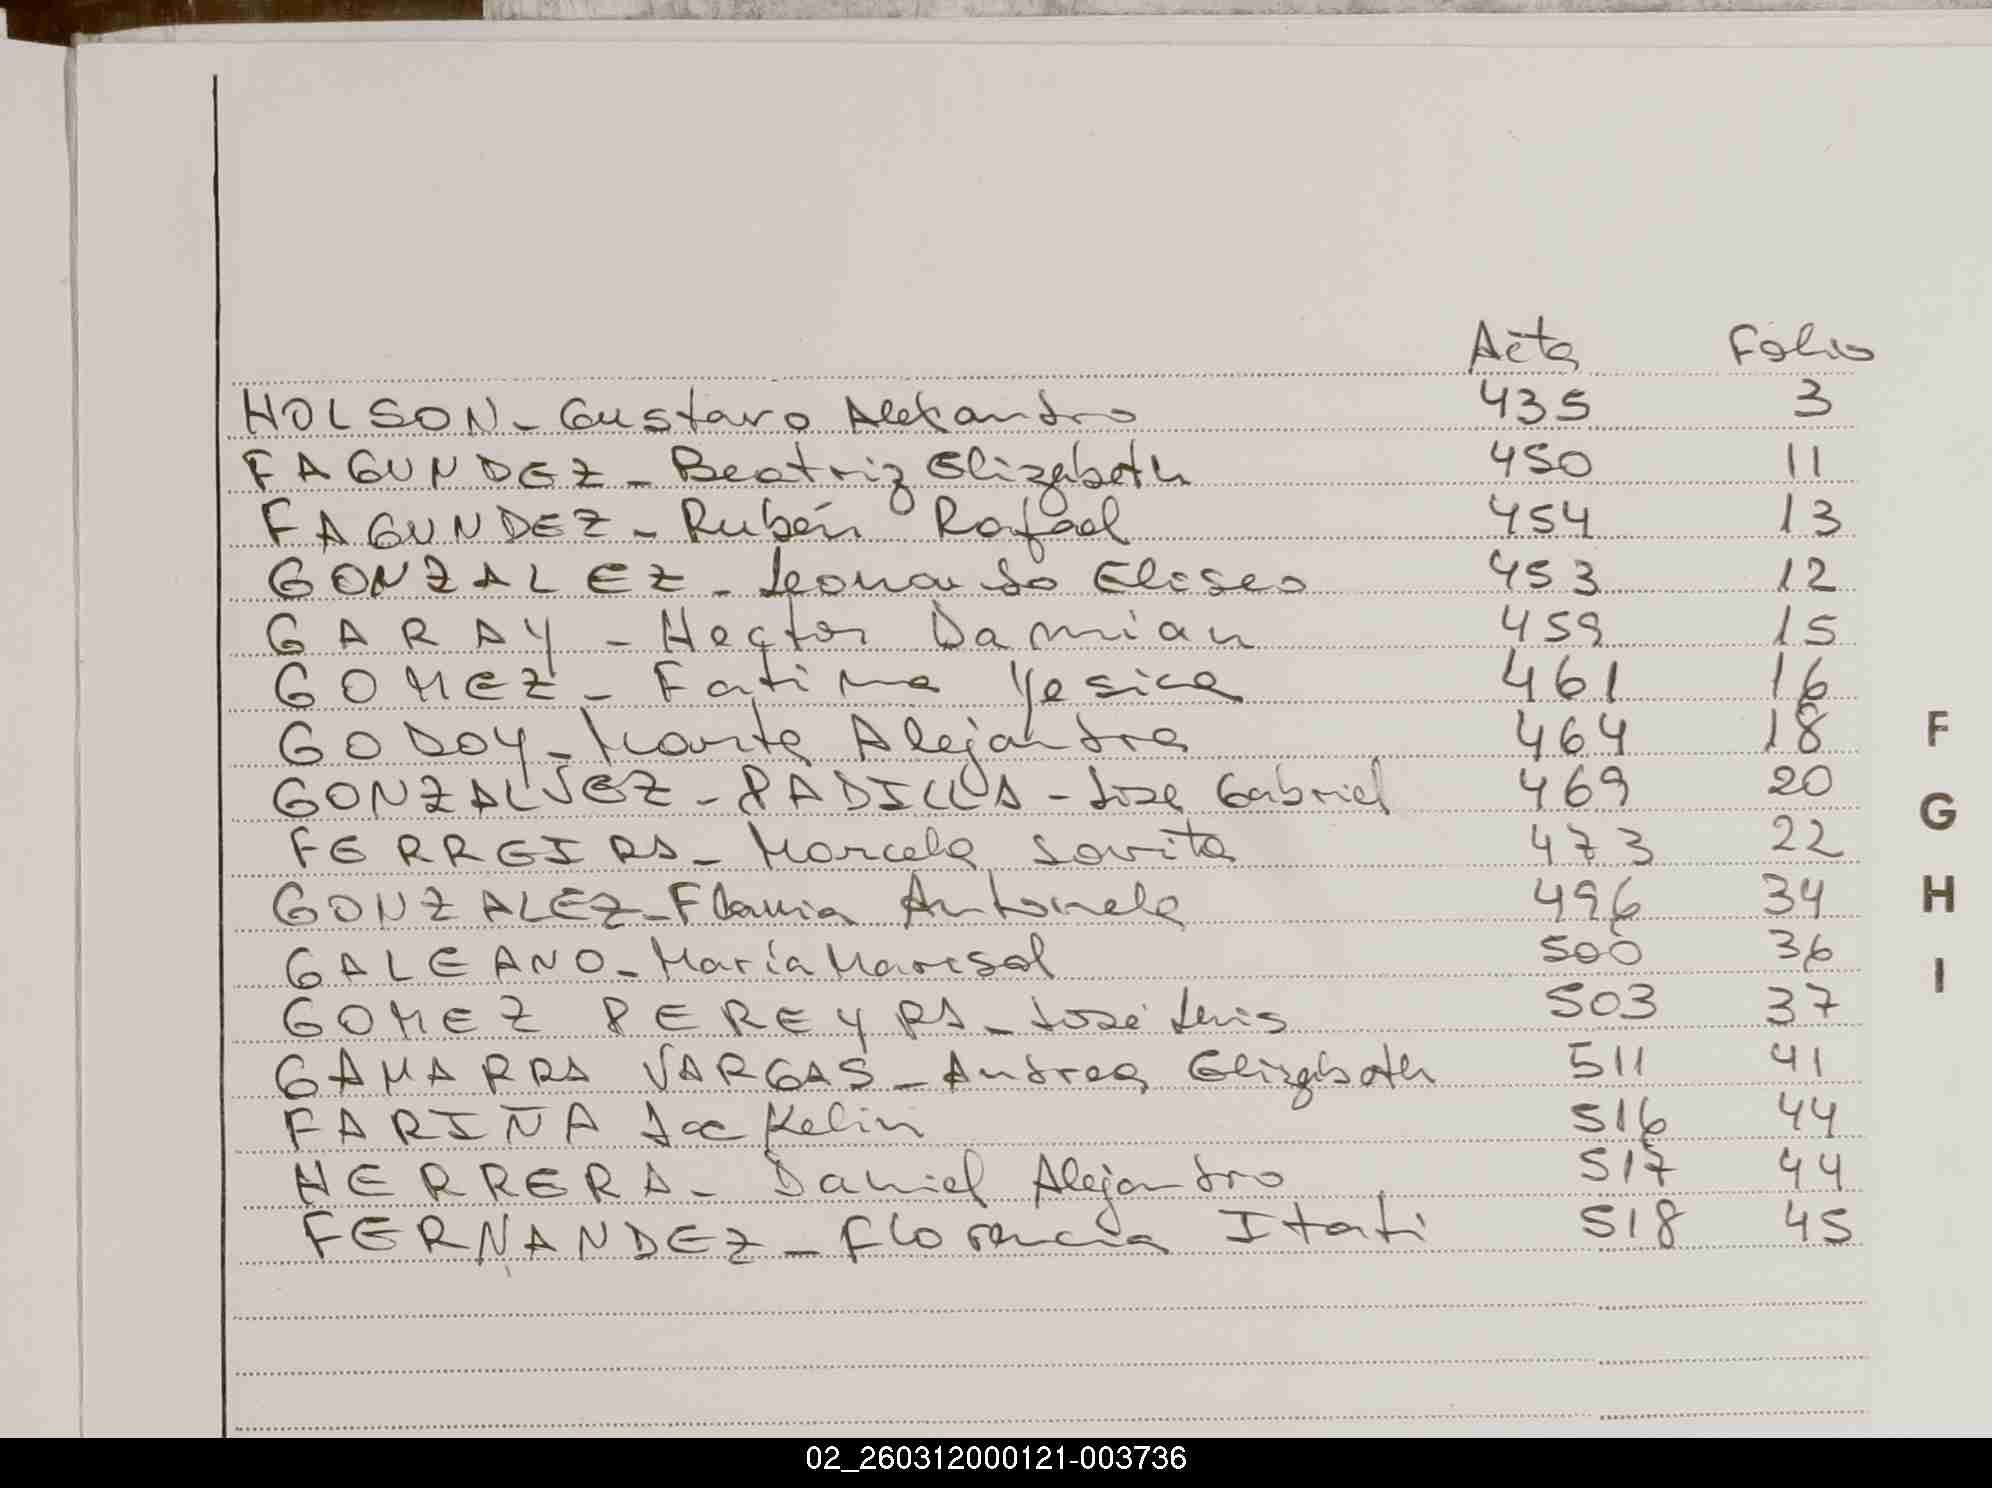 Acta Folio
HOLSON - Gustavo Alexandro 435 3
FAGUNDEZ - Beatriz Elizabeth 450 11
FAGUNDEZ - Rubén Rafael 454 13
GONZALEZ - Leonardo Eliseo 453 12
GARAY - Hector Damian 459 15
GOMEZ - Fatima Yesica 461 16
GODOY - Marta Alejandra 464 18
GONZALVEZ - PADILLA - José Gabriel 469 20
FERREIRA - Marcela 473 22
GONZALEZ - Flavia Antonela 496 34
GALEANO - María Marisol 500 36
GOMEZ PEREYRA - José Luis 503 37
GAMARRA VARGAS - Andrea Elizabeth 511 41
FARIÑA Jackelin 516 44
HERRERA - Daniel Alejandro 517 44
FERNANDEZ - Florencia Itati 518 45
F
G
H
I
02_260312000121-003736